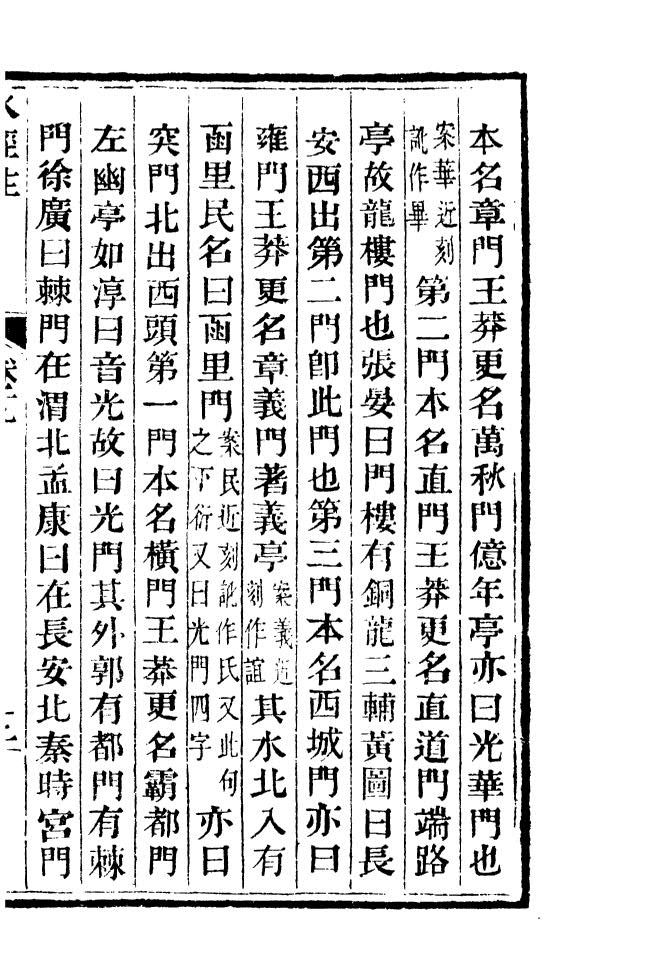 本名章門王莽更名萬秋門億年亭亦曰光華門也
案華近刻訛作畢第二門本名直門王莽更名直道門端路
亭故龍樓門也張晏曰門樓有銅龍三輔黃圖曰長
安西出第二門卽此門也第三門本名西城門亦曰
雍門王莽更名章義門著義亭案義近刻作誼其水北入有
函里民名曰函里門案民近刻訛作氏又此句之下衍又曰光門四字亦曰
突門北出西頭第一門本名橫門王莽更名霸都門
左幽亭如淳曰音光故曰光門其外郭有都門有棘
門徐廣曰棘門在渭北孟康曰在長安北秦時宮門
水經注